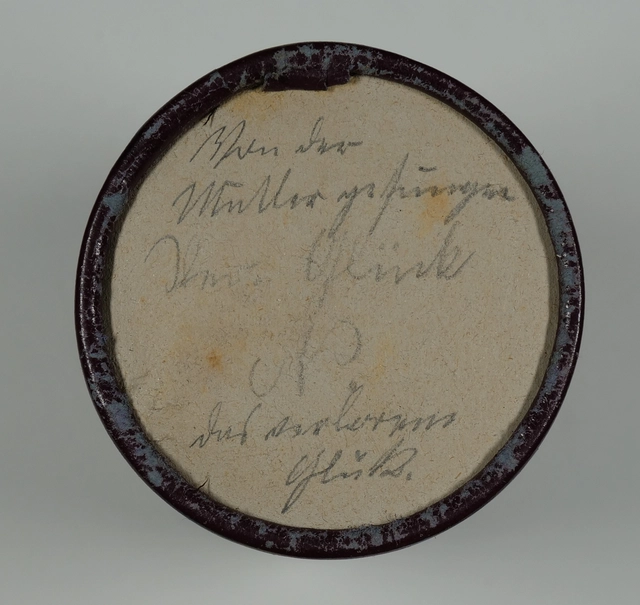 Von der
Mutter gesungen
Glück
das verlorene
Glück.